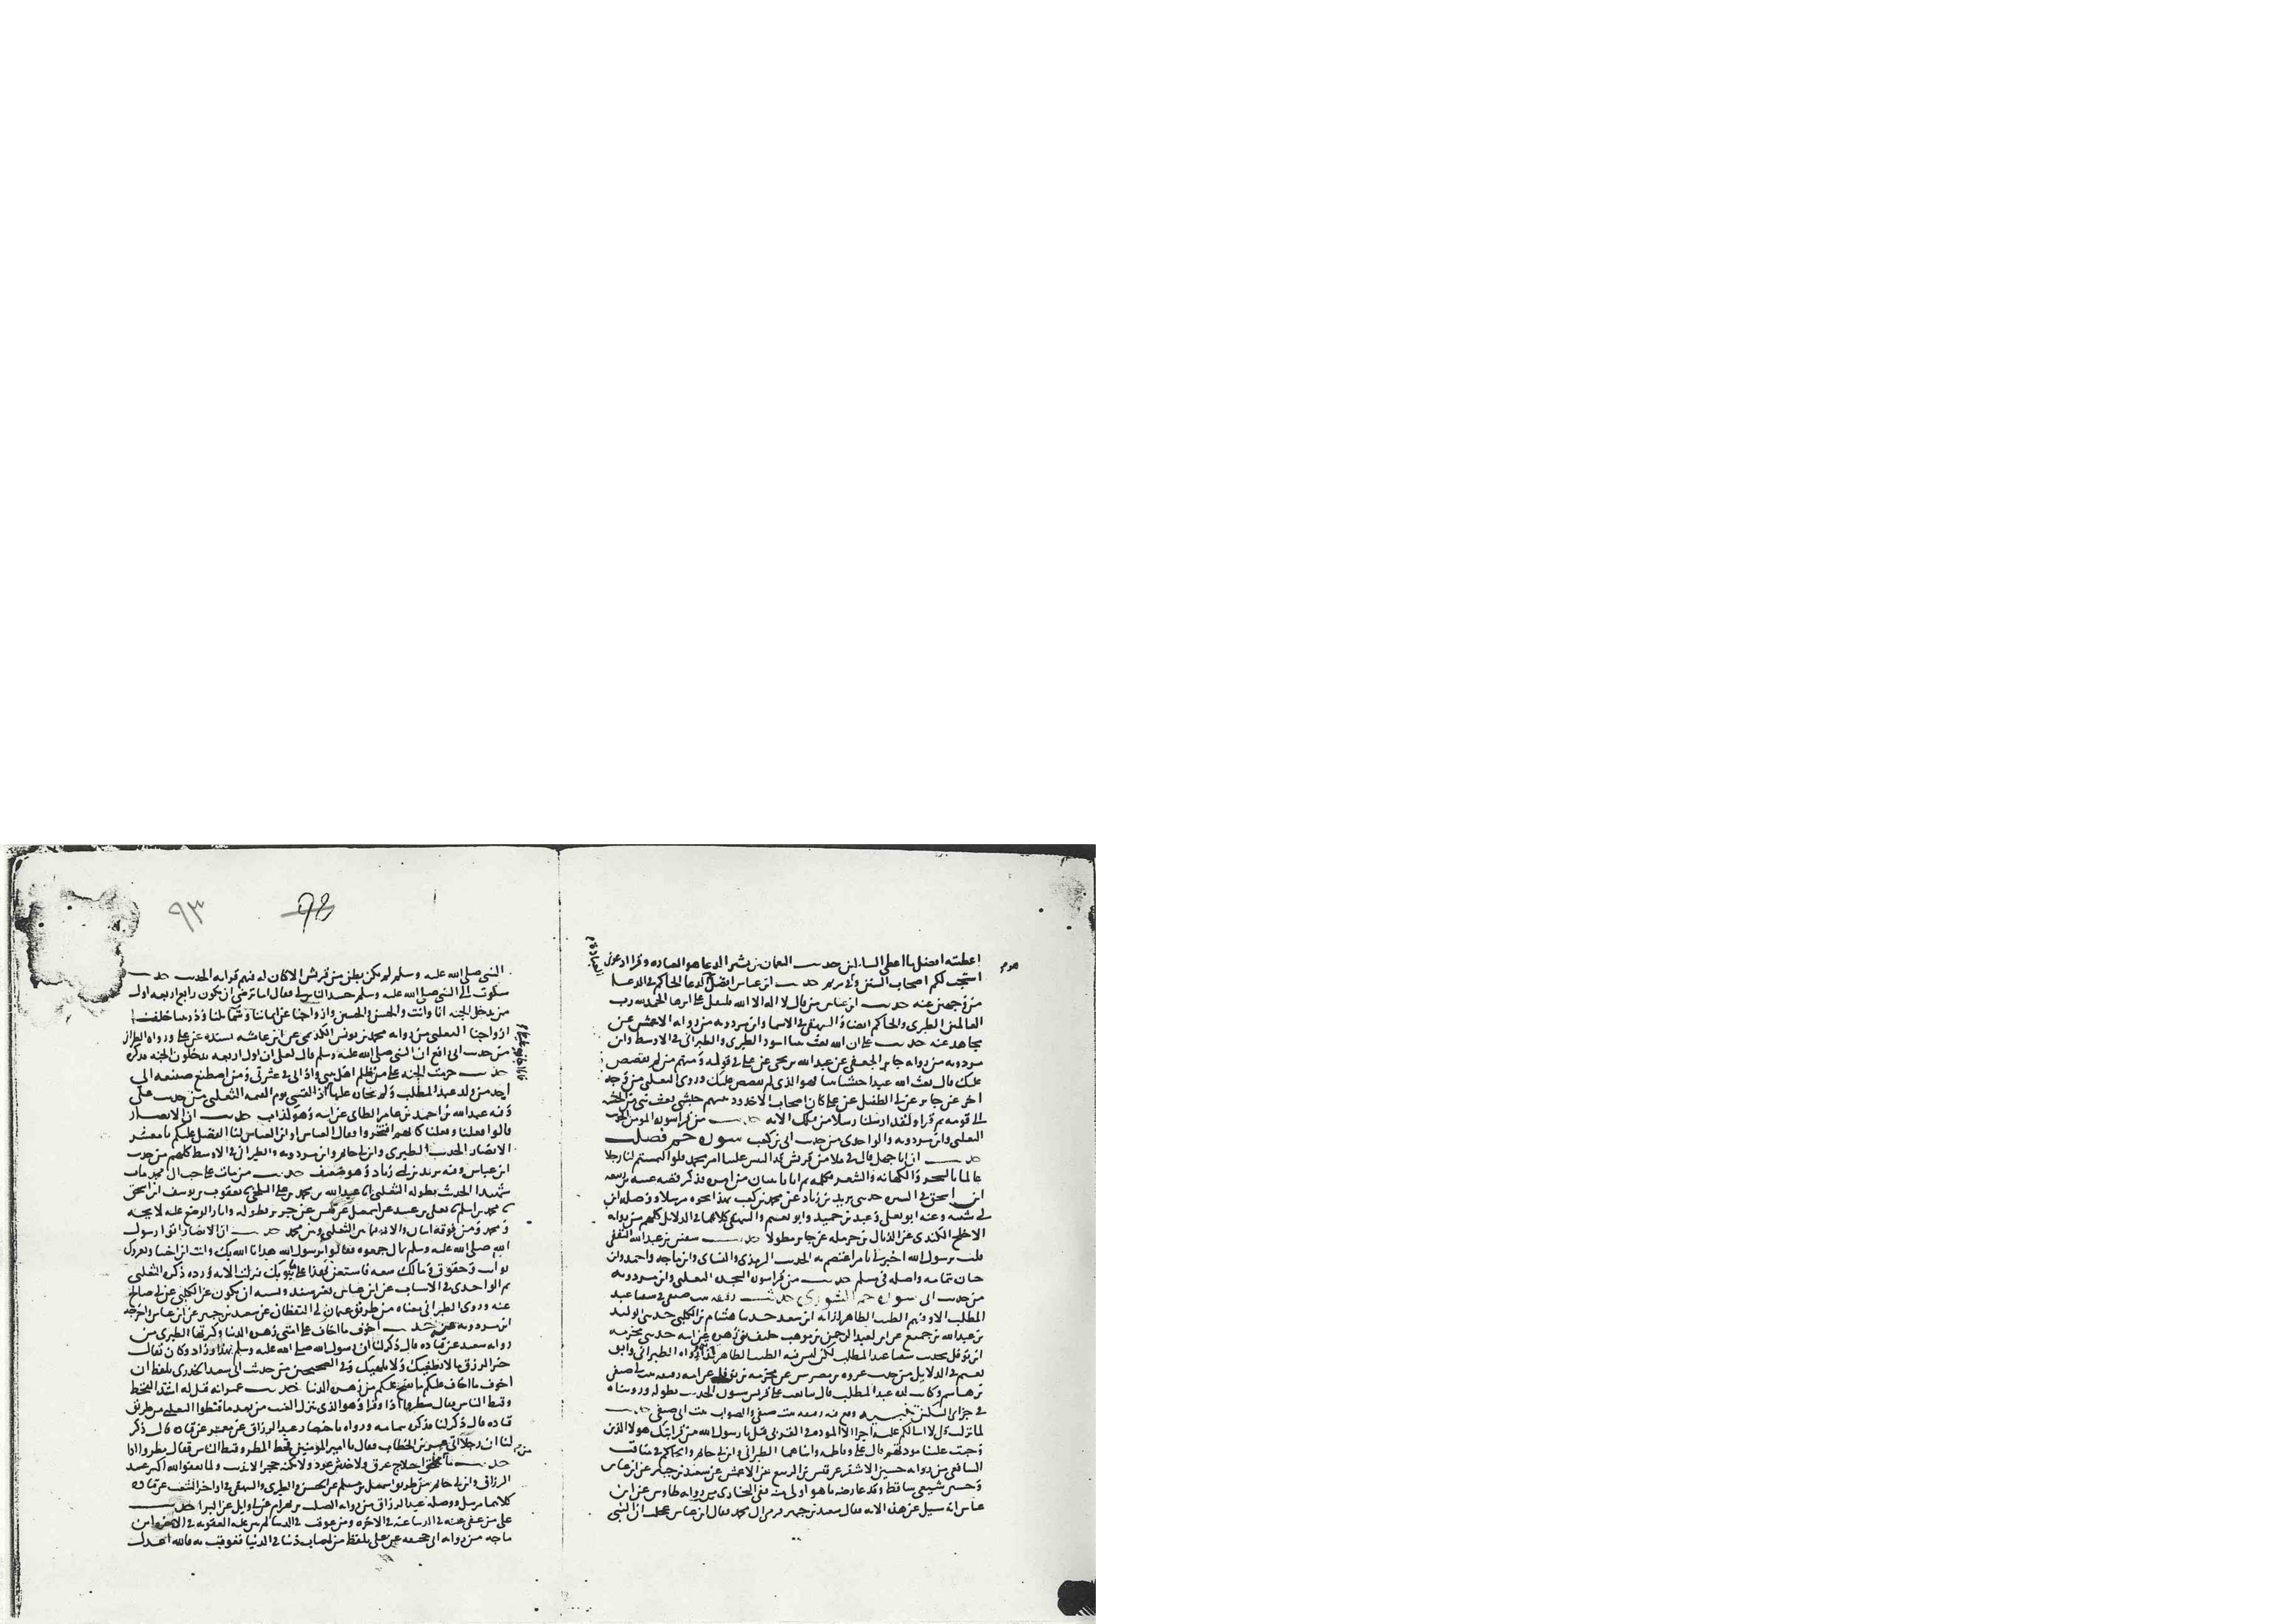 اعطيته افضل ما اعطى السائلين حديث النعمان بن بشير الدعا هو العباده وقرا ادعوني
استجب لكم اصحاب السنن حديث ابن عباس افضل الدعا الحاكم في الدعا
من وجهين عنه حديث ابن عباس من قال لا اله الا الله فليقل على اثرها الحمد لله رب
العالمين الطبري والحاكم ايضا والبيهقي في الاسما وابن مردويه من روايه الاعمش عن
مجاهد عنه حديث علي ان الله بعث نبيا اسود الطبري والطبراني في الاوسط وابن
مردويه من روايه جابر الجعفي عن عبد الله بن يحيى عن علي في قوله ومنهم من لم نقصص
عليك قال بعث الله عبدا حبشيا نبيا فهو الذي لم نقصص عليك وروى الثعلبي من وجه
اخر عن جابر عن ابي الطفيل عن علي كان اصحاب الاخدود نبيهم حبشي بعث نبي من الحبشه
الى قومه ثم قرا ولقد ارسلنا رسلا من قبلك الايه حديث من قرا سوره المومن
الثعلبي وابن مردويه والواحدي من حديث ابي بن كعب سوره حم فصلت
حديث ان ابا جهل قال في ملا من قريش قد التبس علينا امر محمد فلو التمستم لنا رجلا
عالما بالسحر والكهانه والشعر فكلمه ثم اتانا ببيان من امره فذكر قصه عتبه بن ربيعه
ابن اسحق في السيره حدثني يزيد بن زياد عن محمد بن كعب بهذا نحوه مرسلا ووصله ابن
ابي شيبه وعنه ابو يعلى وعبد بن حميد وابو نعيم والبيهقي كلاهما في الدلايل كلهم من روايه
الاجلح الكندي عن الذيال بن حرمله عن جابر مطولا حديث سفين بن عبد الله الثقفي
قلت يرسول الله اخبرني بامر اعتصم به الحديث الترمذي والنساي وابن ماجه واحمد وابن
حبان بتمامه واصله في مسلم حديث من قرا سوره السجده الثعلبي وابن مردويه
من حديث ابي سوره حم الشورى حديث رقيقه بنت صيفي في سقيا عبد
المطلب الا وفيهم الطيب الطاهر لذاته ابن سعد حدثنا هشام بن الكلبي حدثني الوليد
بن عبد الله بن جميع عن ابن لعبد الرحمن بن موهب حليف بني زهره عن ابيه حدثني مخرمه
ابن نوفل بحديث سقيا عبد المطلب لكن ليس فيه الطيب الطاهر لذاته رواه الطبراني وابو
نعيم في الدلايل من حديث عروه بن مضرس عن مخرمه بن نوفل عن امه رقيقه بنت صيفي
بن هاشم وكانت لده عبد المطلب قال تتابعت على قريش سنون الحديث بطوله ورويناه
في جزء ابي السكين تنبيه وقع فيه رقيقه بنت صيفي والصواب بنت ابي صيفي حديث
لما نزلت قل لا اسالكم عليه اجرا الا الموده في القربى قيل يا رسول الله من قرابتك هولا الذين
وجبت علينا مودتهم قال علي وفاطمه وابناهما الطبراني وابن ابي حاتم والحاكم في مناقب
الشافعي من روايه حسين الاشقر عن قيس بن الربيع عن الاعمش عن سعيد بن جبير عن ابن عباس
وحسين شيعي ساقط وقد عارضه ما هو اولى منه ففي البخاري من روايه طاوس عن ابن
عباس انه سيل عن هذه الايه فقال سعيد بن جبير قربى ال محمد فقال ابن عباس عجلت ان النبي
٩٣
93
النبي صلى الله عليه وسلم لم يكن بطن من قريش الا كان له فيهم قرابه الحديث حديث
شكوت الى النبي صلى الله عليه وسلم حسد الناس لي فقال اما ترضى ان تكون رابع اربعه اول
من يدخل الجنه انا وانت والحسن والحسين وازواجنا عن ايماننا وشمايلنا وذرياتنا خلف
ازواجنا الثعلبي من روايه محمد بن يونس الكديمي عن ابن عايشه بسنده عن علي ورواه الطبراني
من حديث ابي رافع ان النبي صلى الله عليه وسلم قال لعلي ان اول اربعه يدخلون الجنه فذكره
حديث حرمت الجنه على من ظلم اهل بيتي واذاني في عترتي ومن اصطنع صنيعه الى
احد من ولد عبد المطلب ولم يجازه عليها اذا لقيني يوم القيمه الثعلبي من حديث علي
وفيه عبد الله بن احمد بن عامر الطاي عن ابيه وهو كذاب حديث ان الانصار
قالوا فعلنا وفعلنا كانهم افتخروا فقال العباس او ابن العباس لنا الفضل عليكم يا معشر
الانصار الحديث الطبري وابن ابي حاتم وابن مردويه والطبراني في الاوسط كلهم من حديث
ابن عباس وفيه يزيد بن ابي زياد وهو ضعيف حديث من مات على حب ال محمد مات
شهيدا الحديث بطوله الثعلبي انا عبد الله بن محمد بن علي البلخي نا يعقوب بن يوسف ابن اسحق
نا محمد بن اسلم نا يعلى بن عبيد عن اسمعيل عن قيس عن جرير بطوله واثار الوضع عليه لايحه
ومحمد ومن فوقه اثبات والافه فيه ما بين الثعلبي ومحمد حديث ان الانصار اتوا رسول
الله صلى الله عليه وسلم بمال جمعوه فقالوا يرسول الله هدانا الله بك وانت ابن اختنا وتعروك
نوايب وحقوق وما لك سعه فاستعن بهذا على ما ينوبك فنزلت الايه ورده ذكره الثعلبي
ثم الواحدي في الاسباب عن ابن عباس بغير سند ويشبه ان يكون عن الكلبي عن ابي صالح
عنه وروى الطبراني معناه من طريق عثمان ابي اليقظان عن سعيد بن جبير عن ابن عباس واخرجه
ابن مردويه حديث اخوف ما اخاف على امتي زهره الدنيا وكثرتها الطبري من
روايه سعيد عن قتاده قال ذكر لنا ان رسول الله صلى الله عليه وسلم بهذا وزاد وكان يقال
خير الرزق ما لا يطغيك ولا يلهيك وفي الصحيحين من حديث ابي سعيد الخدري بلفظ ان
اخوف ما اخاف عليكم ما يفتح عليكم من زهره الدنيا حديث عمر انه قيل له اشتد القحط
وقنط الناس فقال مطروا اذا وقرا وهو الذي ينزل الغيث من بعد ما قنطوا الثعلبي من طريق
قتاده قال ذكر لنا فذكره بتمامه ورواه باختصار عبد الرزاق عن معمر عن قتاده قال ذكر
لنا ان رجلا اتى عمر بن الخطاب فقال يا امير المومنين قحط المطر وقنط الناس فقال مطروا اذا
حديث ما من اختلاج عرق ولا خدش عود ولا نكبه حجر الا بذنب ولما يعفو الله اكثر عبد
الرزاق وابن ابي حاتم من طريق اسمعيل بن مسلم عن الحسن والطبري والبيهقي في اواخر الشعب عن قتاده
كلاهما مرسل ووصله عبد الرزاق من روايه الصلت بن بهرام عن ابي وايل عن البرا حديث
علي من عفي عنه في الدنيا عفي عنه في الاخره ومن عوقب في الدنيا لم تثن عليه العقوبه في الاخره ابن
ماجه من روايه ابي جحيفه عن علي بلفظ من اصاب ذنبا في الدنيا فعوقب به فالله اعدل